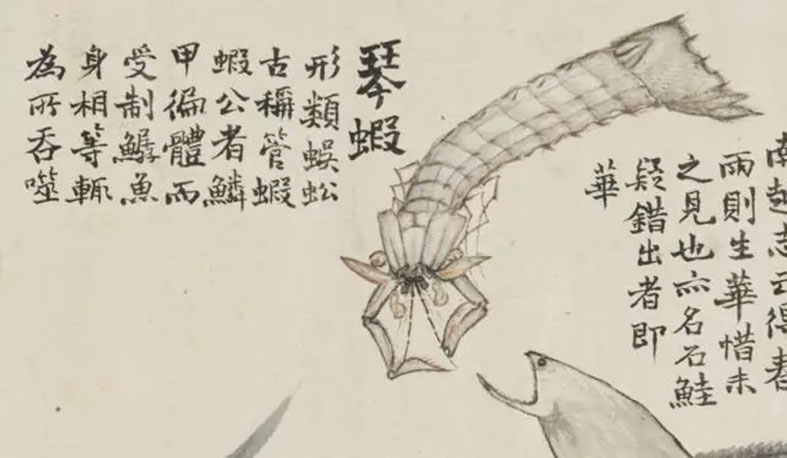 南越志云得春
雨則生華惜未
之見也亦名石鮭
疑錯出者即
華
琴蝦
形類蜈蚣
古稱管蝦
蝦公者鱗
甲徧體而
受制魚
身相等輒
為所吞噬